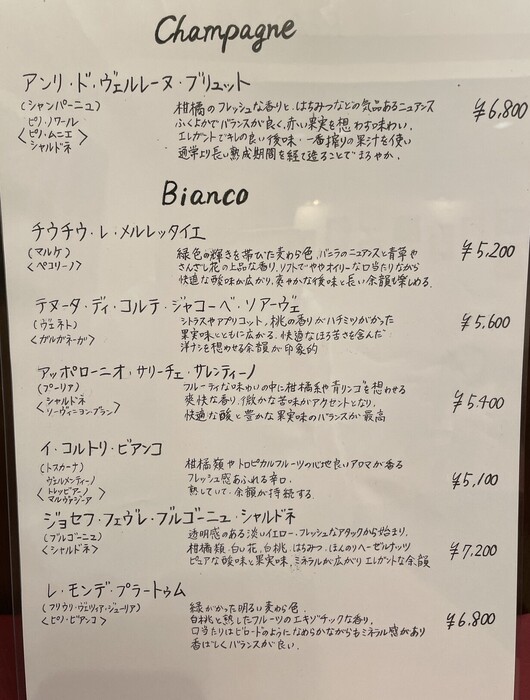 Champagne
アンリ・ド・ヴェルレーヌ・ブリュット
(シャンパーニュ)
<ピノ・ノワール
ピノ・ムニエ
シャルドネ>
柑橘のフレッシュな香りと、はちみつなどの気品あるニュアンス
ふくよかでバランスが良く、赤い果実を想わす味わい、
エレガントでキレの良い後味・一番搾りの果汁を使い
通常より長い熟成期間を経て造ることでまろやか。
¥6,800
Bianco
チウチウ・レ・メルレッタイエ
(マルケ)
<ペコリーノ>
緑色の輝きを帯びた麦わら色、バニラのニュアンスと青草や
さんざし花の上品な香り。ソフトでややオイリーな口当たりながら
快適な酸味が広がり、爽やかな後味と長い余韻も楽しめる。
¥5,200
テヌータ・ディ・コルテ・ジャコーベ・ソアーヴェ
(ヴェネト)
<ガルガネーガ>
シトラスやアプリコット、桃の香りがハチミツがかった
果実味とともに広がる。快適なほろ苦さを含んだ
洋ナシを想わせる余韻が印象的
¥5,600
アッポローニオ・サリーチェ・サレンティーノ
(プーリア)
<シャルドネ
ソーヴィニヨン・ブラン>
フルーティな味わいの中に柑橘系や青リンゴを想わせる
爽快な香り、微かな苦味がアクセントとなり、
快適な酸と豊かな果実味のバランスが最高
¥5,400
イ・コルトリ・ビアンコ
(トスカーナ)
<ヴェルメンティーノ
トレッビアーノ
マルヴァジーア>
柑橘類やトロピカルフルーツの心地良いアロマが香る
フレッシュ感あふれる辛口。
熟していて、余韻が持続する
¥5,100
ジョセフ・フェヴレ・ブルゴーニュ・シャルドネ
(ブルゴーニュ)
<シャルドネ>
透明感のある淡いイエロー、フレッシュなアタックから始まり、
柑橘類、白い花、白桃、はちみつ、ほんのりヘーゼルナッツ
ピュアな酸味と果実味、ミネラルが広がりエレガントな余韻
¥7,200
レ・モンデ・プラートゥム
(フリウリ・ヴェツィア・ジューリア)
<ピノ・ビアンコ>
緑がかった明るい麦わら色、
白桃と熟したフルーツのエキゾチックな香り。
口当たりはビロードのようになめらかながらもミネラル感があり
香ばしくバランスが良い。
¥6.800